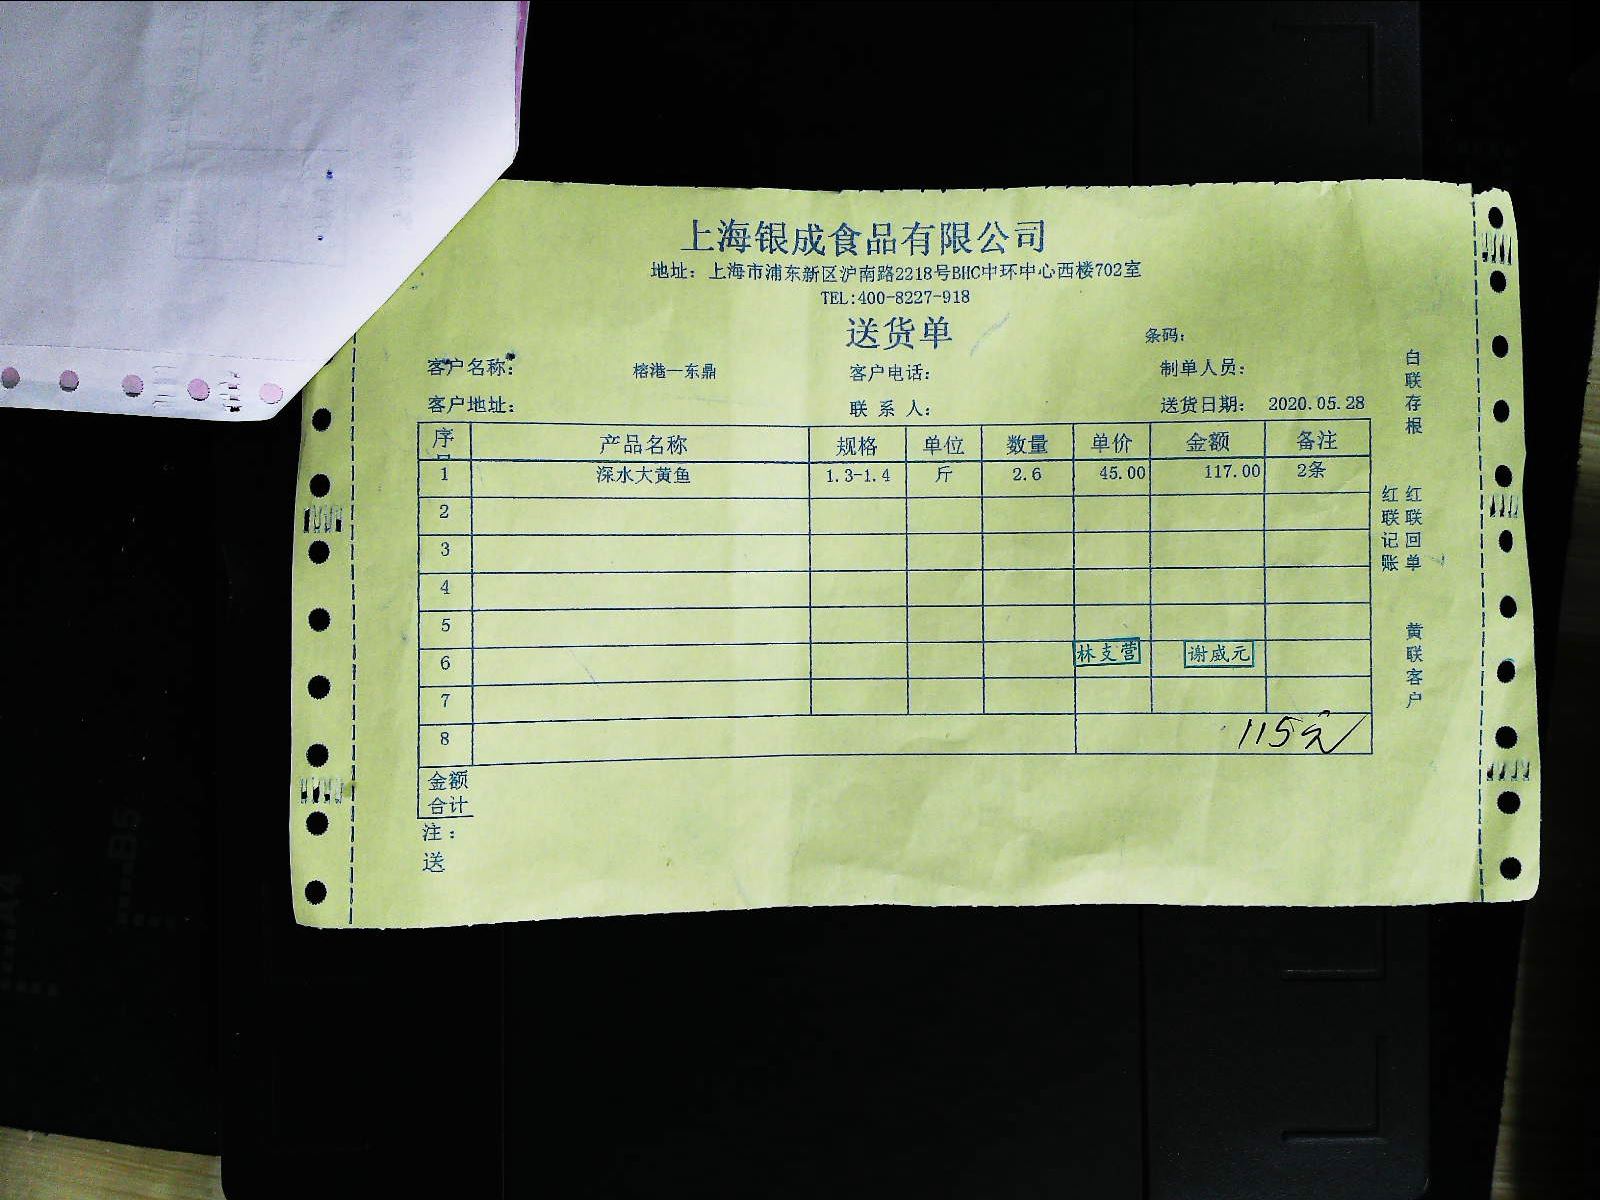 上海银成食品有限公司
地址：上海市浦东新区沪南路2218号BHC中环中心西楼702室
TEL:400-8227-918
送货单
条码：
客户名称： 榕港—东鼎 客户电话： 制单人员：
客户地址： 联 系 人： 送货日期： 2020.05.28
序 产品名称 规格 单位 数量 单价 金额 备注
1 深水大黄鱼 1.3-1.4 斤 2.6 45.00 117.00 2条
2
3
4
5
6 林支营 谢威元
7
8 115元
金额
合计
注：
送
白联存根
红联回单
红联记账
黄联客户